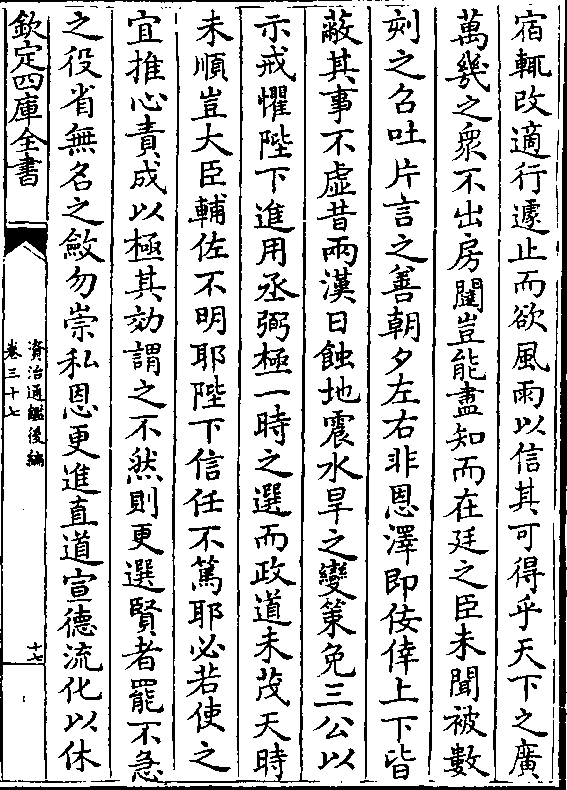 宿輒改適行遽止而欲風雨以信其可得乎天下之廣
萬幾之衆不出房闥豈能盡知而在廷之臣未聞被數
刻之召吐片言之善朝夕左右非恩澤即佞倖上下皆
蔽其事不虛昔兩漢日蝕地震水旱之變策免三公以
示戒懼陛下進用丞弼極一時之選而政道未茂天時
未順豈大臣輔佐不明耶陛下信任不篤耶必若使之
宜推心責成以極其効謂之不然則更選賢者罷不急
之役省無名之斂勿崇私恩更進直道宣德流化以休
欽定四庫全書
資治通鑑後編
卷三十七
十七